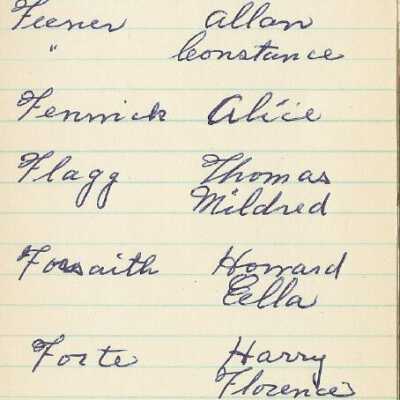 Feener Allan
" Constance
Fenwick Alice
Flagg Thomas
Mildred
Forsaith Howard
Eella
Forte Harry
Florence